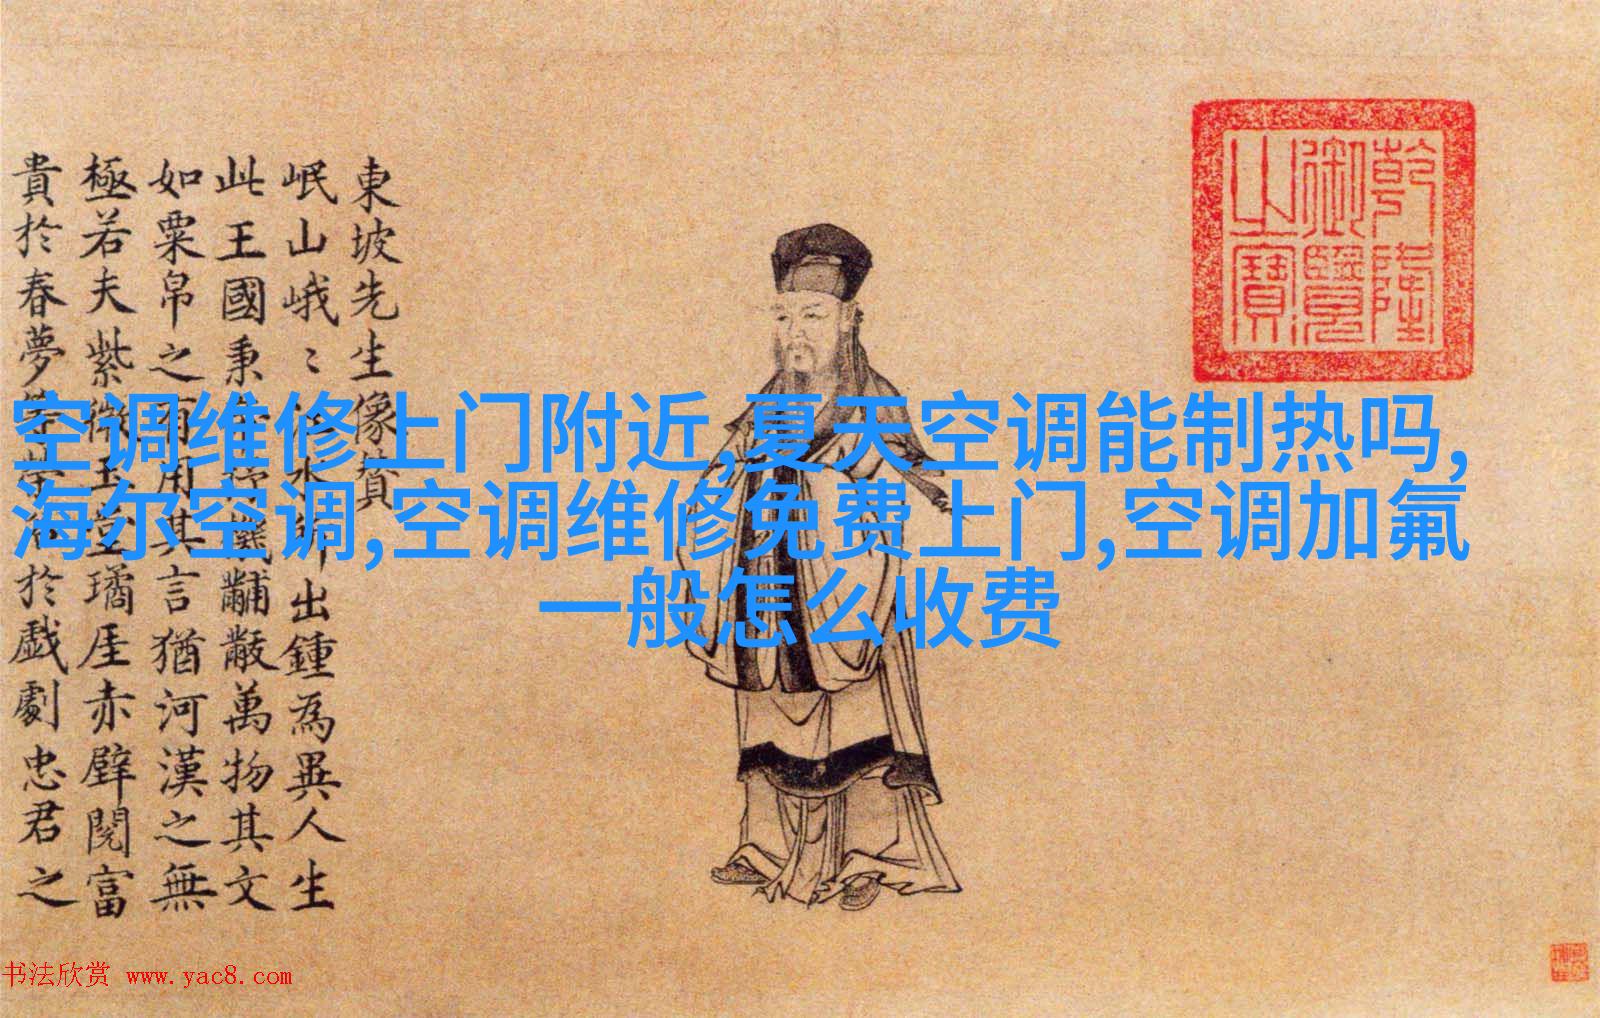 東坡先生像贊
岷山峨〻江水所出鍾為異人生
此王國秉機黼黻萬物其文
如粟帛之有用其言猶河漢之無
極若夫紫微玉堂璚厓赤壁閱富
貴於春夢於戲劇忠君之
乾隆
御覽
之寶
空调维修上门附近,夏天空调能制热吗,
海尔空调,空调维修免费上门,空调加氟
一般怎么收费
书法欣赏 www.yac8.com